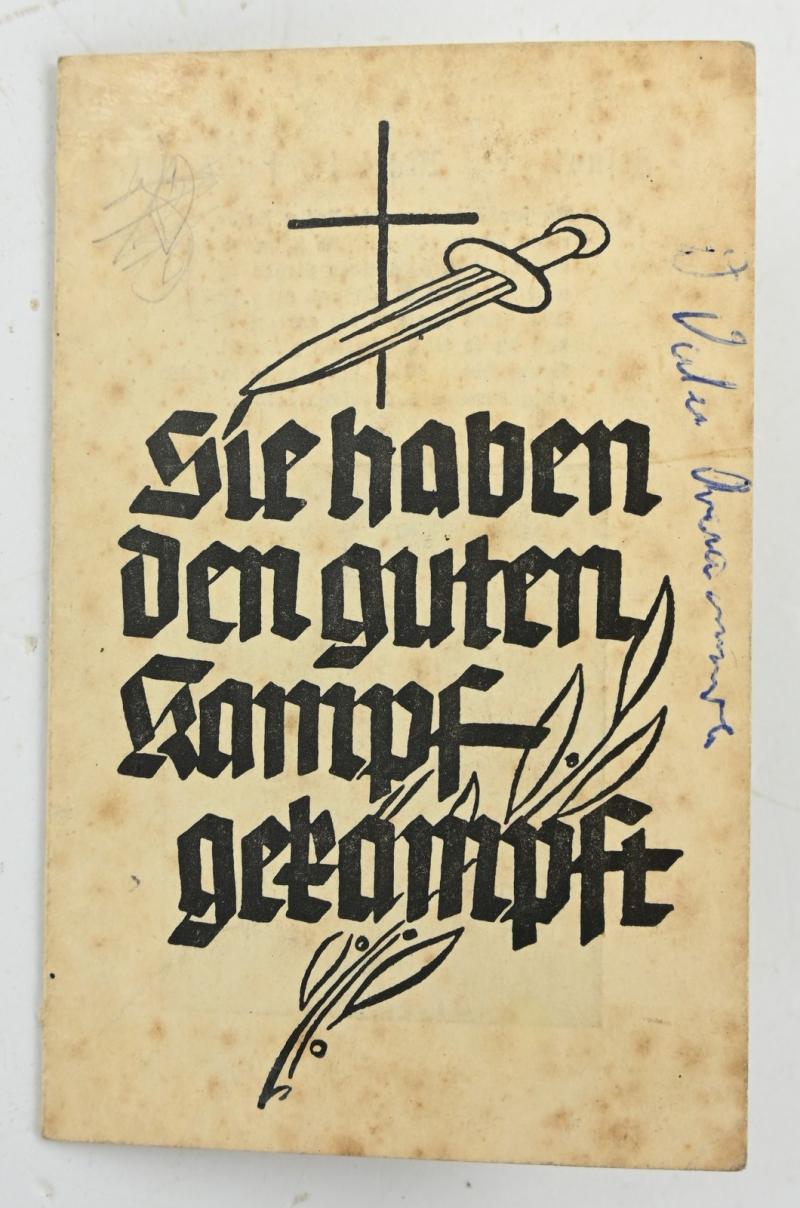 Sie haben
den guten
Kampf
gekampft